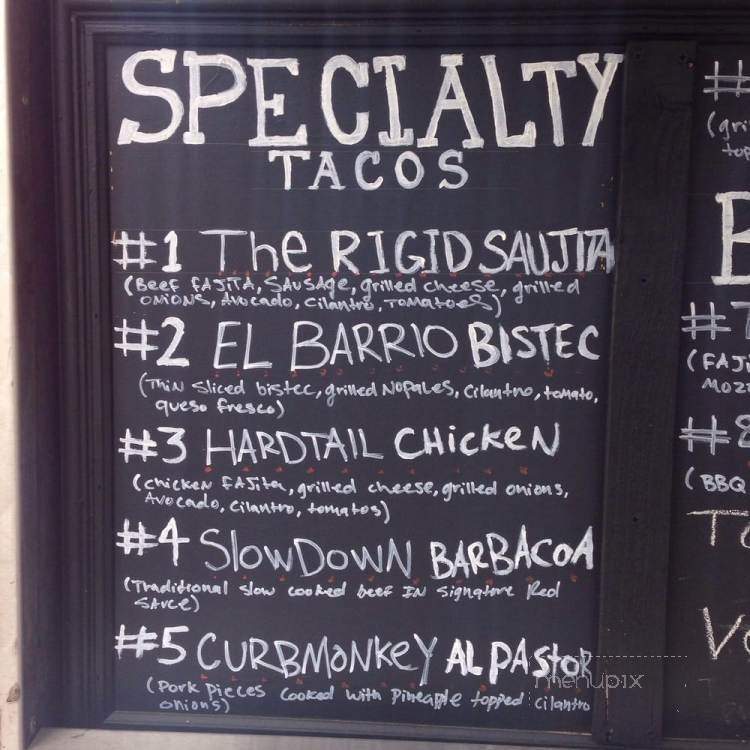 SPECIALTY
TACOS
#1 The RIGID SAUJITA
(Beef FAJITA, SAUSAge, grilled cheese, grilled
ONIONS, Avocado, cilantro, TOMATOES)
#2 EL BARRIO BISTEC
(Thin sliced bistec, grilled NOPALES, cilantro, tomato,
queso fresco)
#3 HARDTAIL CHICKEN
(chicken FAJita, grilled cheese, grilled onions,
Avocado, cilantro, tomatos)
#4 SlowDOWN BARBACOA
(Traditional slow cooked beef IN signature Red
SAUCE)
#5 CURBMONKEY AL PAStOR
(Pork pieces cooked with pineapple topped cilantro
onions)
menupix
#
(gri
top
B
#7
(FAJi
MOZ
#8
(BBQ